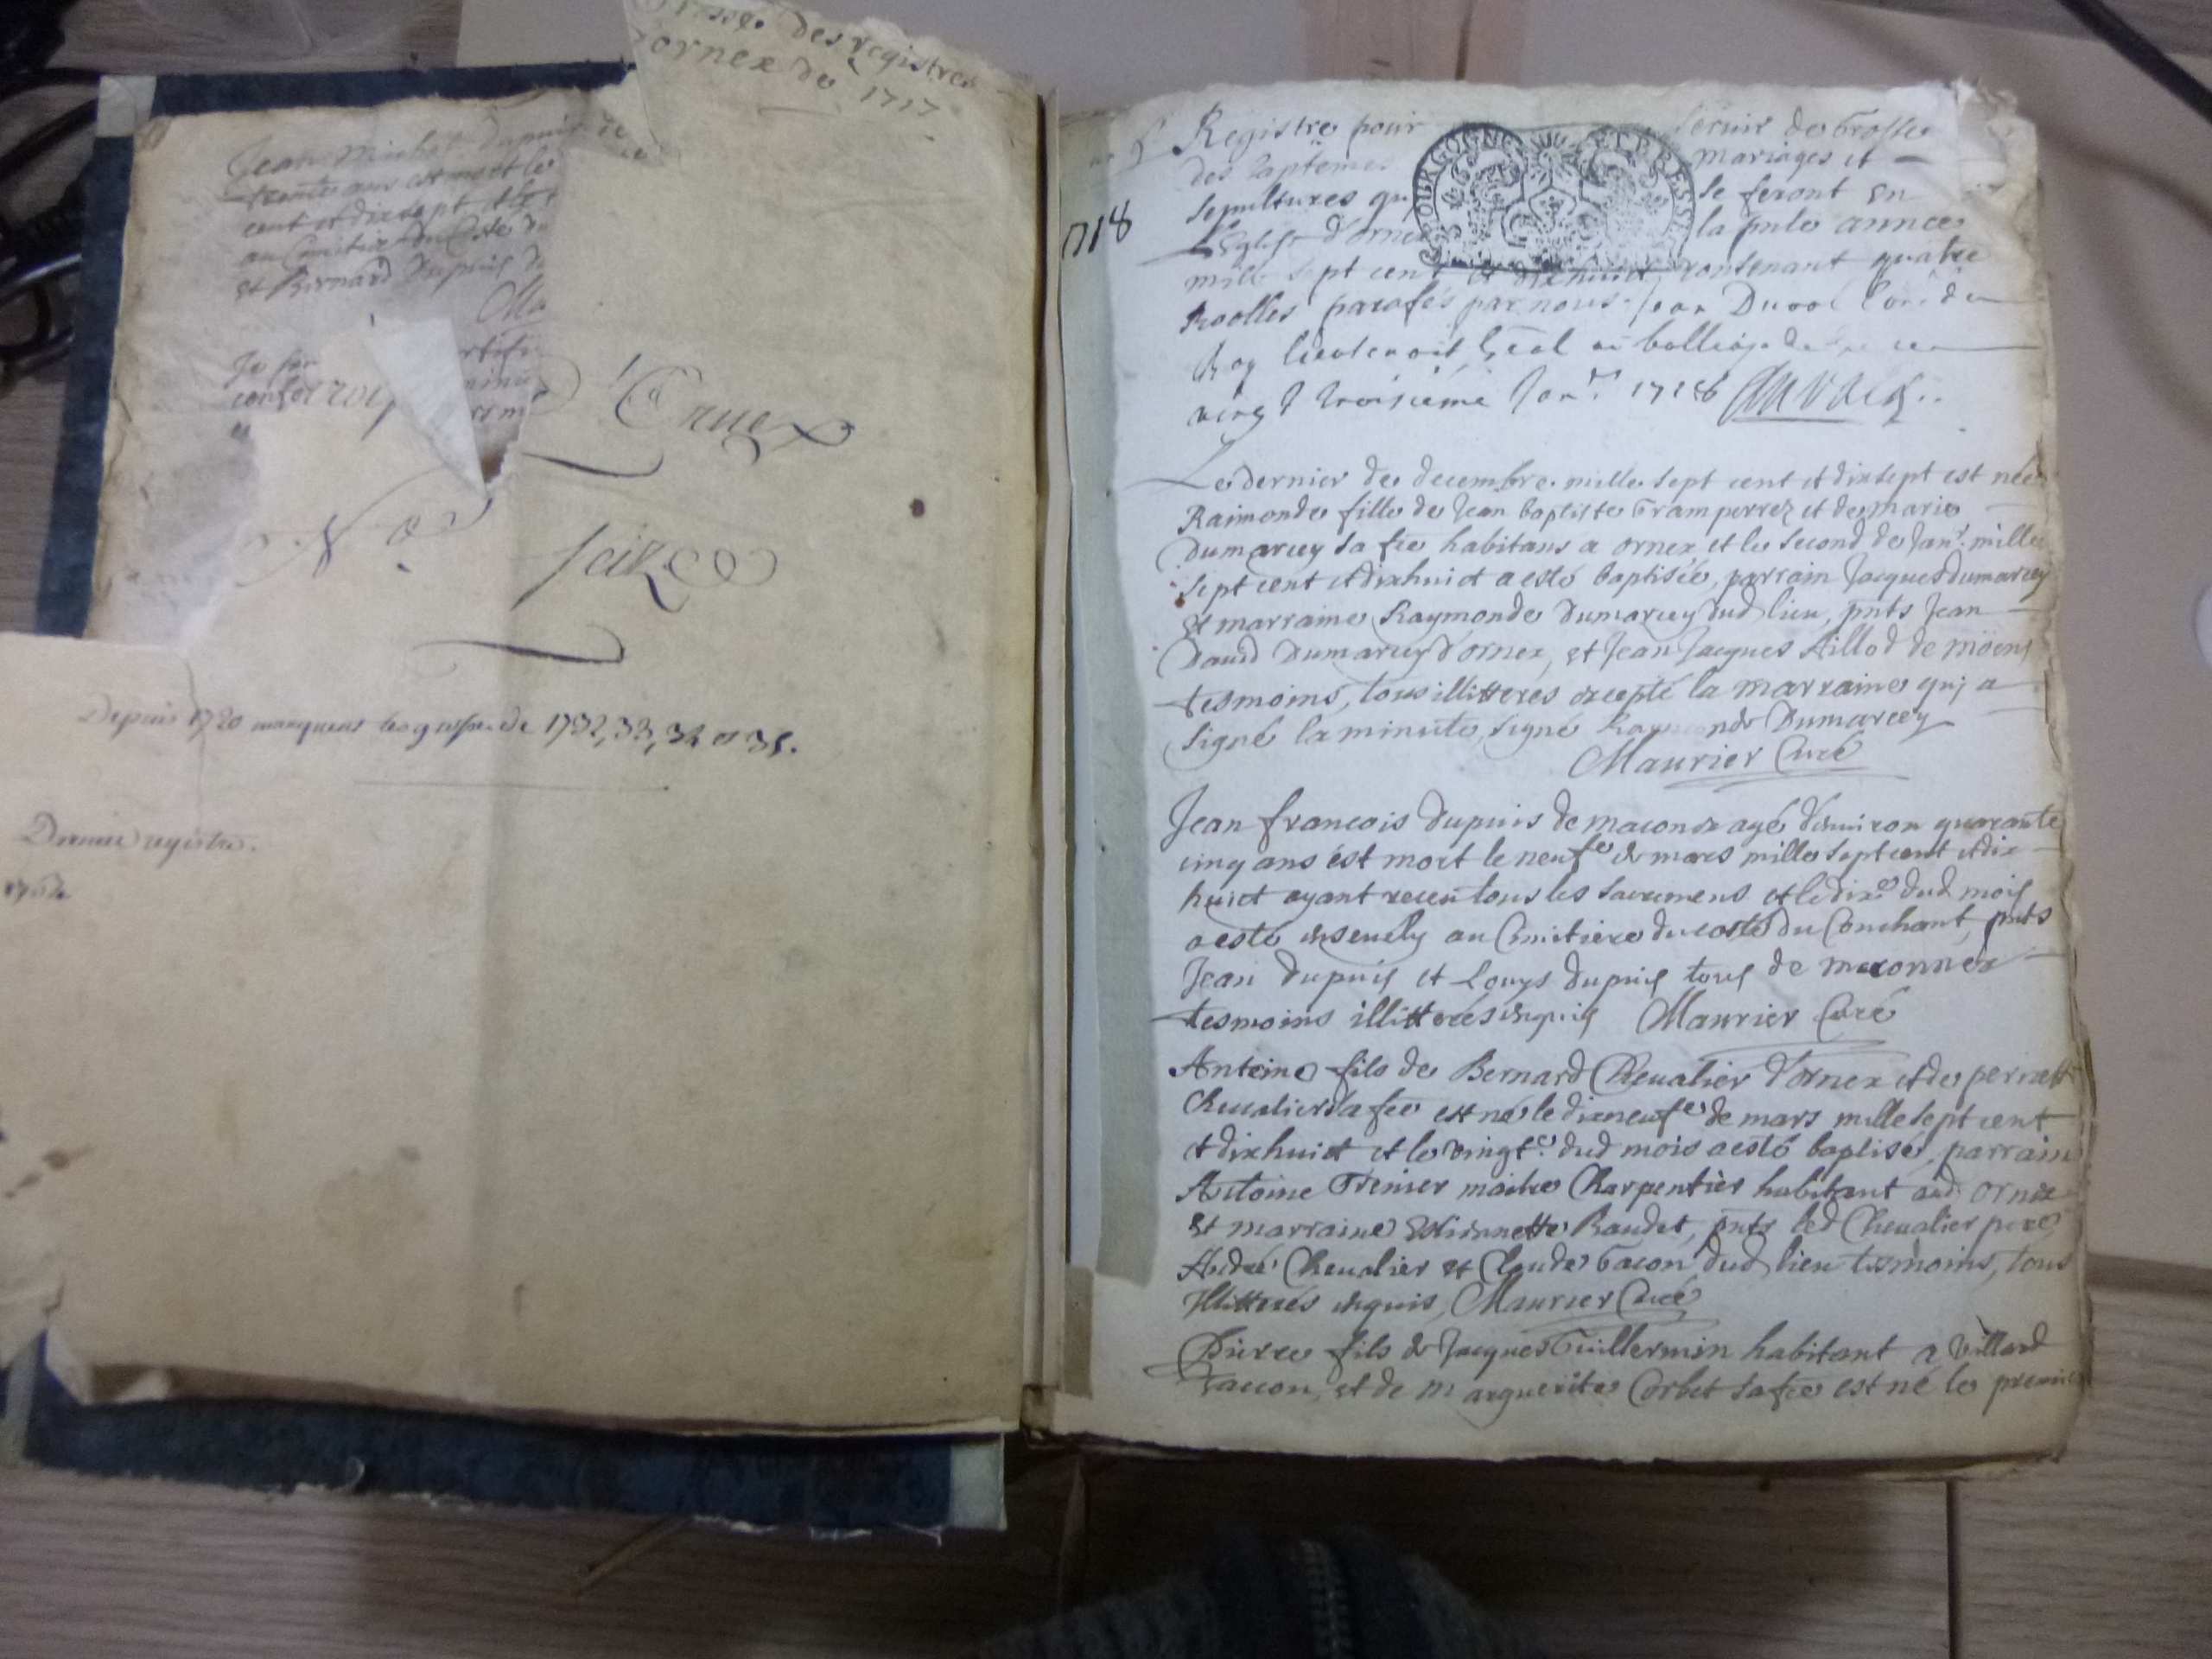 des registres
ornex de 1717
Jean Michel Dupuis de
trente ans est mort le
cent et dixsept et le
au Cimitiere du Costé du
et Bernard Dupuis d
Je
N.o seize
Depuis 1720 manquent les de 1732, 33, 34 et 35.
Dernier registre.
1718
Registre pour servir de Grosse
des baptemes mariages et
sepultures qui se feront en
L'Eglise d'ornex la pnte année
mille sept cent et dixhuict contenant quatre
Roolles parafés par nous Jean
Roy lieutenant Gēal au balliage de
vingt troisieme Janr. 1718
Le dernier de decembre mille sept cent et dixsept est née
Raimonde fille de Jean baptiste Gramperrez et de marie
Dumarcey sa fēe habitans a ornex et le second de Janr. mille
sept cent et dixhuict a esté baptisée, parrain Jacques Dumarcey
et marraine Raymonde Dumarcey dud lieu, pnts Jean
David Dumarcey d'ornex, et Jean Jacques Aillod de möens
tesmoins, tous illitteres excepté la marraine qui a
signé la minute, signé Raymonde Dumarcey
Maurier Curé
Jean françois Dupuis de maconex agé d'environ quarante
cinq ans est mort le neufe de mars mille sept cent et dix
huict ayant receu tous les sacremens et le dixe dud mois
a esté ensevely au Cimitiere du costé du Couchant, pnts
Jean Dupuis et Louys Dupuis tous de maconnex
tesmoins illitterés enquis Maurier Curé
Antoine fils de Bernard Chevalier d'ornex et de pernette
Chevalier sa fēe est né le dixneufe de mars mille sept cent
et dixhuict et le vingte. dud mois a esté baptisé, parrain
Antoine Grenier maitre Charpentier habitant aud ornex
et marraine Baudet, pnts led Chevalier pere,
André Chevalier et Claude Gacon dud lieu tesmoins, tous
Illitterés enquis, Maurier Curé
Pierre fils de Jacques Guillermin habitant a Villard
Taccon, et de marguerite Corbet sa fēe est né le premier